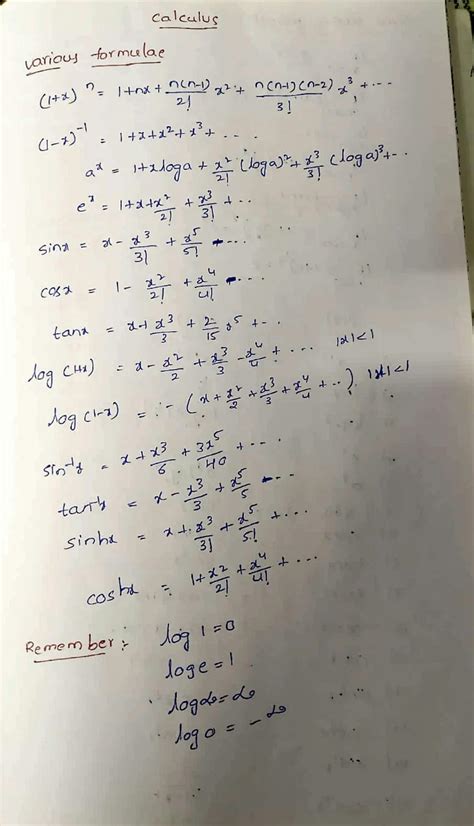 Calculus
various formulae
(1+x)ⁿ = 1+nx+ n(n-1)/2! x² + n(n-1)(n-2)/3! x³ + ...
(1-x)⁻¹ = 1+x+x²+x³+ ...
aˣ = 1+xloga+ x²/2! (loga)² + x³/3! (loga)³+..
eˣ = 1+x+x²/2! + x³/3! + ...
sinx = x- x³/3! + x⁵/5! - ...
cosx = 1- x²/2! + x⁴/4! - ...
tanx = x+ x³/3 + 2/15 x⁵ + ..
log(1+x) = x- x²/2 + x³/3 - x⁴/4 + ... |x|<1
log(1-x) = -(x+ x²/2 + x³/3 + x⁴/4 + ..) |x|<1
sin⁻¹x = x+ x³/6 + 3x⁵/40 + ...
tan⁻¹x = x- x³/3 + x⁵/5 - ...
sinhx = x+ x³/3! + x⁵/5! + ...
coshx = 1+ x²/2! + x⁴/4! + ...
Remember: log 1 = 0
loge = 1
log∞ = ∞
log0 = -∞